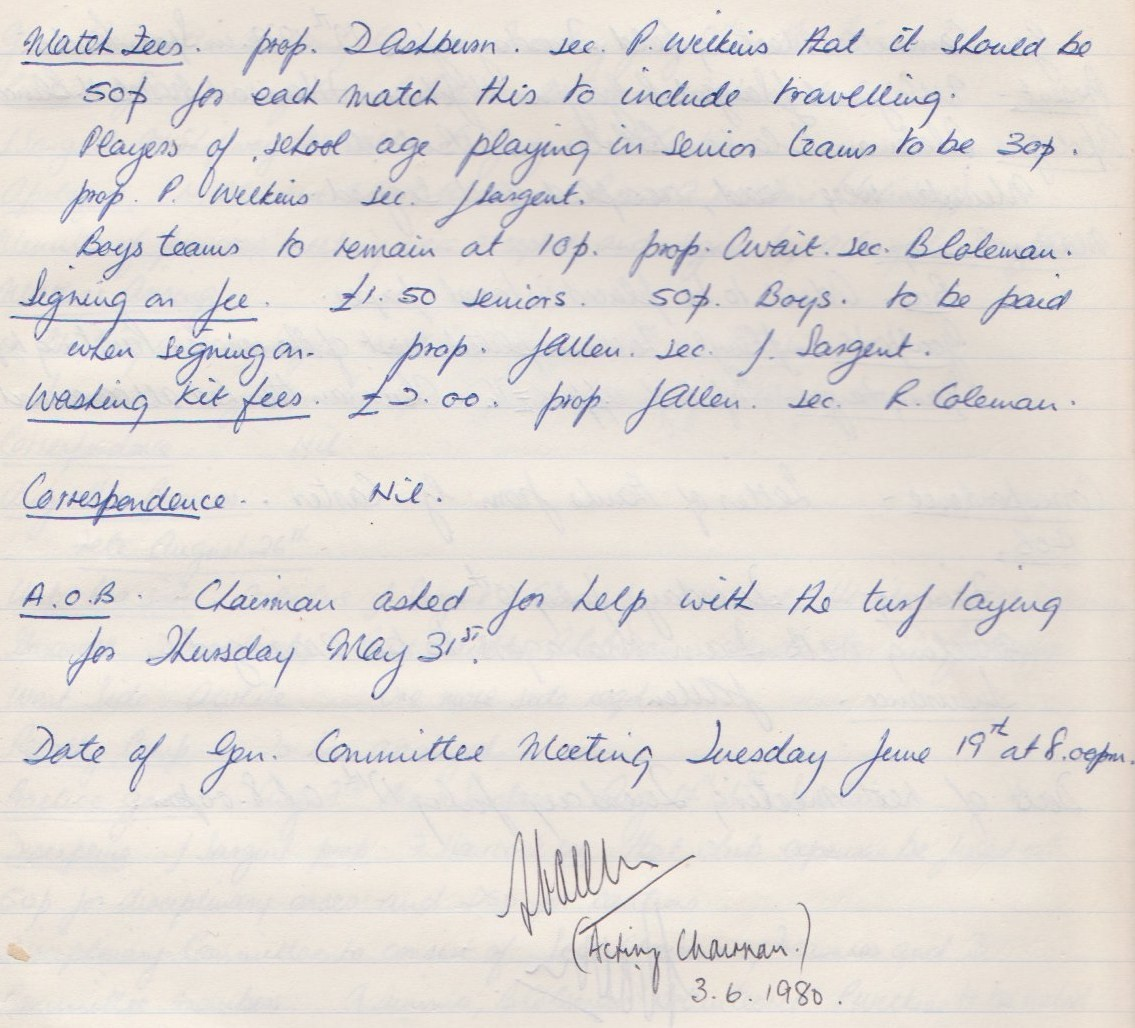 Match Fees. prop. D Ashburn. sec. P. Wilkins that it should be
50p for each match this to include travelling.
Players of school age playing in senior teams to be 30p.
prop. P. Wilkins sec. J Sargent.
Boys teams to remain at 10p. prop. C Wait. sec. B Coleman.
Signing on fee. £1.50 seniors. 50p. Boys. to be paid
when signing on. prop. J Allen. sec. J. Sargent.
Washing kit fees £2.00. prop. J Allen. sec. R. Coleman.
Correspondence. Nil.
A.O.B. Chairman asked for help with the turf laying
for Thursday May 31st.
Date of Gen. Committee Meeting Tuesday June 19th at 8.00pm.
(Acting Chairman.)
3.6.1980.